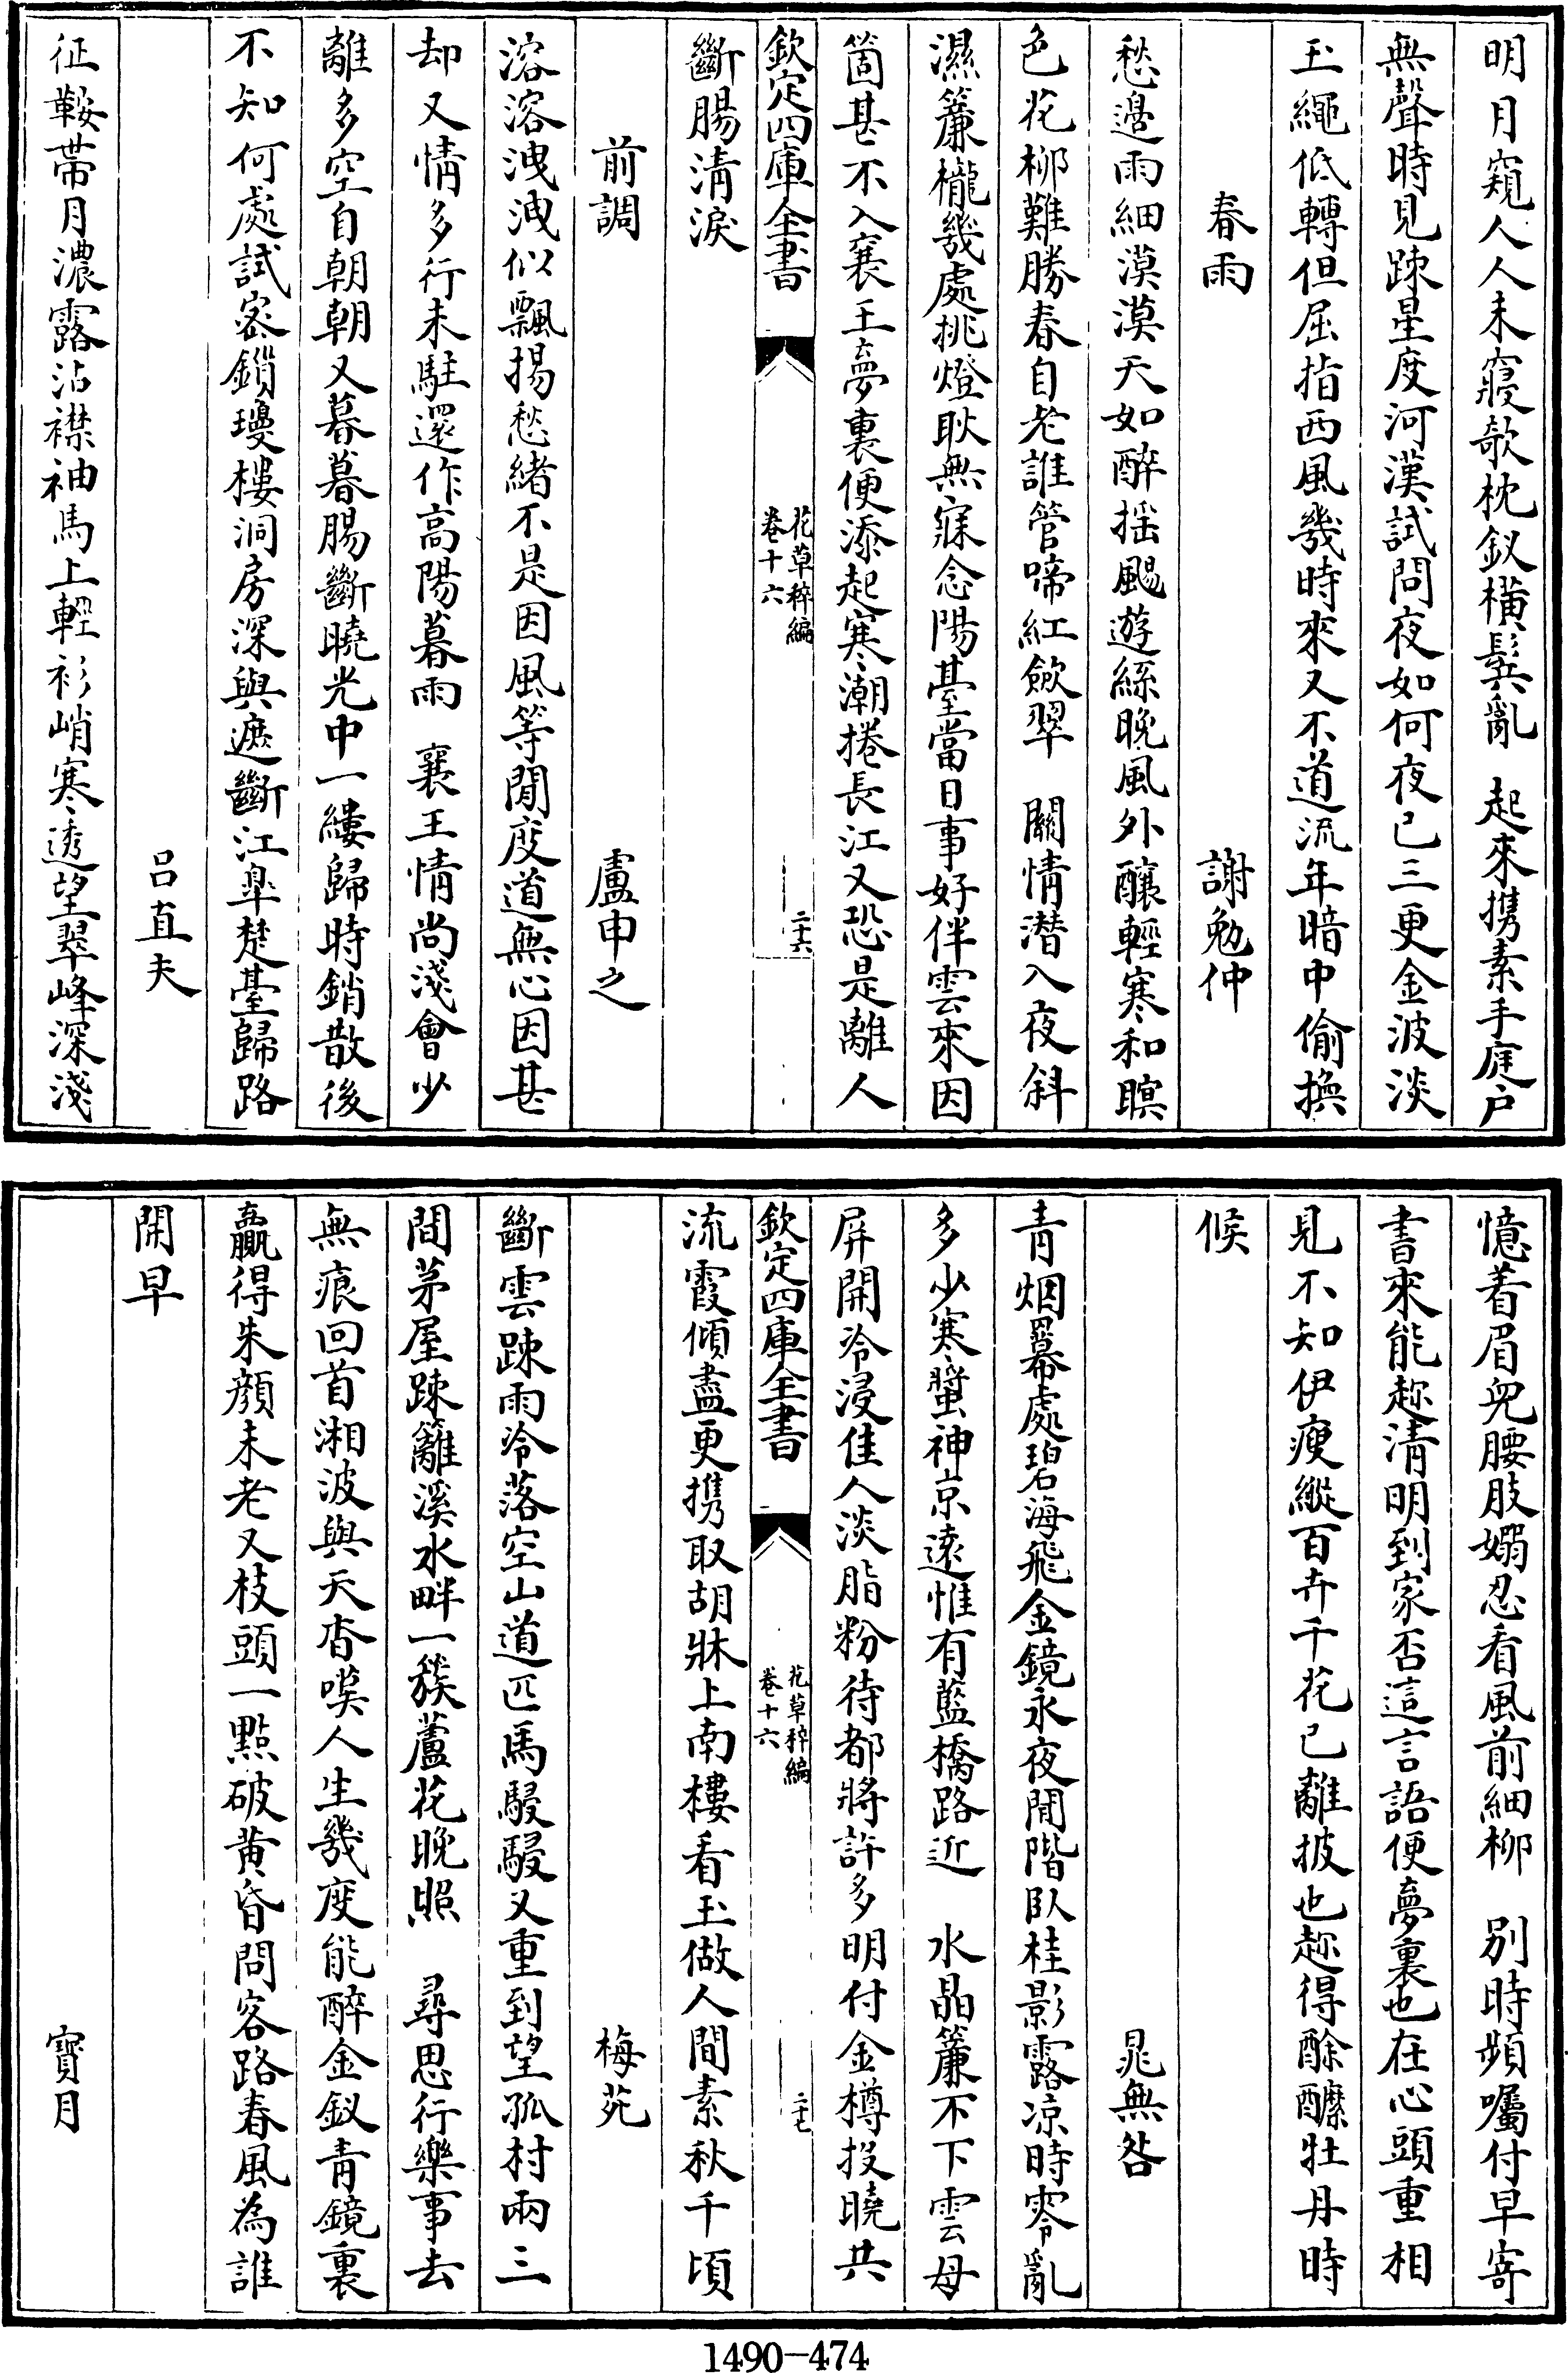 明月窺人人未寢欹枕釵橫鬂亂　起來携素手庭户
無聲時見踈星度河漢試問夜如何夜已三更金波淡
玉繩低轉但屈指西風幾時來又不道流年暗中偷換
春雨　謝勉仲
愁邉雨細漠漠天如醉揺颺遊絲晚風外釀輕寒和暝
色花柳難勝春自老誰管啼紅斂翠　關情潜入夜斜
濕簾櫳幾處挑燈耿無寐念陽臺當日事好伴雲來因
箇甚不入襄王夢裏便添起寒潮捲長江又恐是離人
欽定四庫全書
花草稡編
卷十六
二十六
斷腸清淚
前調　盧申之
溶溶洩洩似飄揚愁緒不是因風等閒度道無心因甚
却又情多行未駐還作高陽暮雨　襄王情尚淺會少
離多空自朝朝又暮暮腸斷曉光中一縷歸時銷散後
不知何處試密鎻瓊樓洞房深與遮斷江臯楚臺歸路
吕直夫
征鞍帶月濃露沾襟袖馬上輕衫峭寒透望翠峰深淺
憶着眉兒腰肢嫋忍看風前細柳　别時頻囑付早寄
書來能趂清明到家否這言語便夢裏也在心頭重相
見不知伊瘦縱百卉千花已離披也趂得酴醾牡丹時
候
晁無咎
青烟羃處碧海飛金鏡永夜閒階臥桂影露凉時零亂
多少寒螿神京遠惟有藍橋路近　水晶簾不下雲母
屏開冷浸佳人淡脂粉待都將許多明付金樽投曉共
欽定四庫全書
花草稡編
卷十六
二十七
流霞傾盡更携取胡牀上南樓看玉做人間素秋千頃
梅苑
斷雲踈雨冷落空山道匹馬駸駸又重到望孤村兩三
間茅屋踈籬溪水畔一簇蘆花晚照　尋思行樂事去
無痕回首湘波與天杳嘆人生幾度能醉金釵青鏡裏
贏得朱顔未老又枝頭一點破黄昏問客路春風為誰
開早
寳月
1490-474